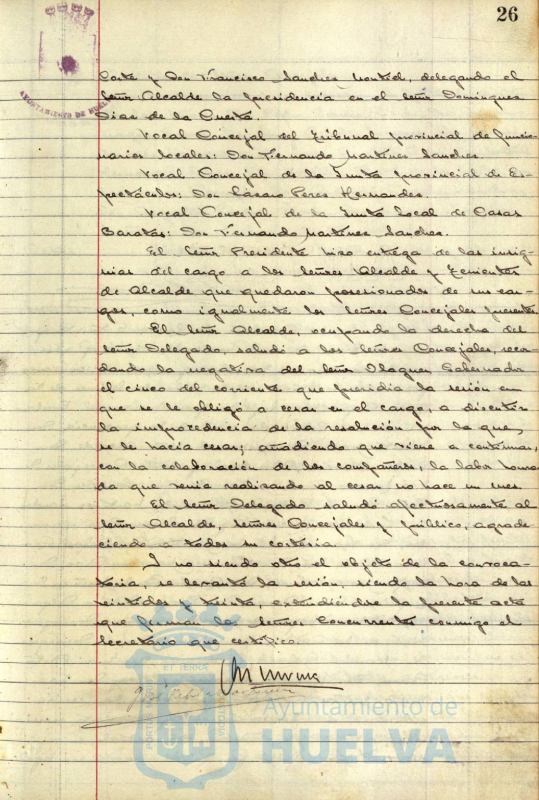 26
AYUNTAMIENTO DE HUELVA
Corte y Don Francisco Sanchez Montiel, delegando el
Señor Alcalde la presidencia en el Señor Dominguez
Diaz de la Cuesta.
Vocal Concejal del Tribunal provincial de funcio-
narios locales: Don Fernando Martinez Sanchez.
Vocal Concejal de la Junta provincial de Es-
pectáculos: Don Lázaro Perez Hernandez.
Vocal Concejal de la Junta local de Casas
Baratas: Don Fernando Martinez Sanchez.
El Señor Presidente hizo entrega de las insig-
nias del cargo a los Señores Alcalde y Tenientes
de Alcalde que quedaron posesionados de sus car-
gos, como igualmente los Señores Concejales presentes.
El Señor Alcalde, ocupando la derecha del
Señor Delegado, saludó a los Señores Concejales, recor-
dando la negativa del Señor Olaguer Gobernador
el cinco del corriente que presidia la sesión en
que se le obligó a cesar en el cargo, a discutir
la improcedencia de la resolución por la que,
se le hacia cesar; añadiendo que viene a continuar,
con la colaboración de los compañeros, la labor honra-
da que venia realizando al cesar no hace un mes.
El Señor Delegado saludó afectuosamente al
Señor Alcalde, Señores Concejales y público, agrade-
ciendo a todos su cortesia.
I no siendo otro el objeto de la convoca-
toria, se levantó la sesión, siendo la hora de las
veintidos y treinta, extendiéndose la presente acta
que firman los Señores concurrentes conmigo el
Secretario que certifico.
Ayuntamiento de
HUELVA